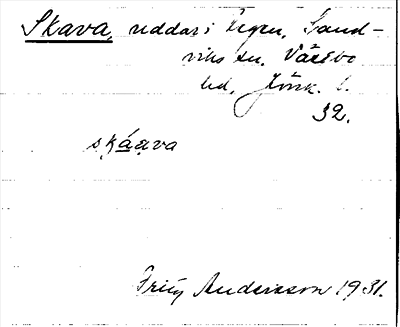 Skava, uddar i Vegen, Sand-
viks sn. Västbo
hd, Jönk. l.
32.
skáava
Fritz Andersson 1931.